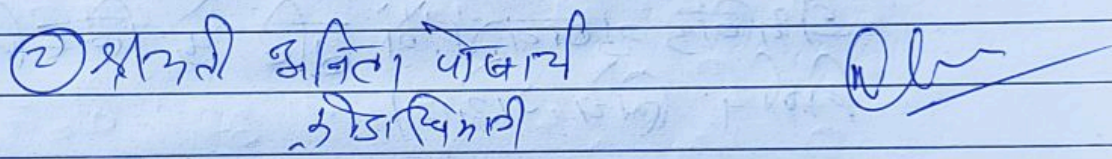 ② श्रीमती अनिता पोखार्य
क्रीडाधिकारी